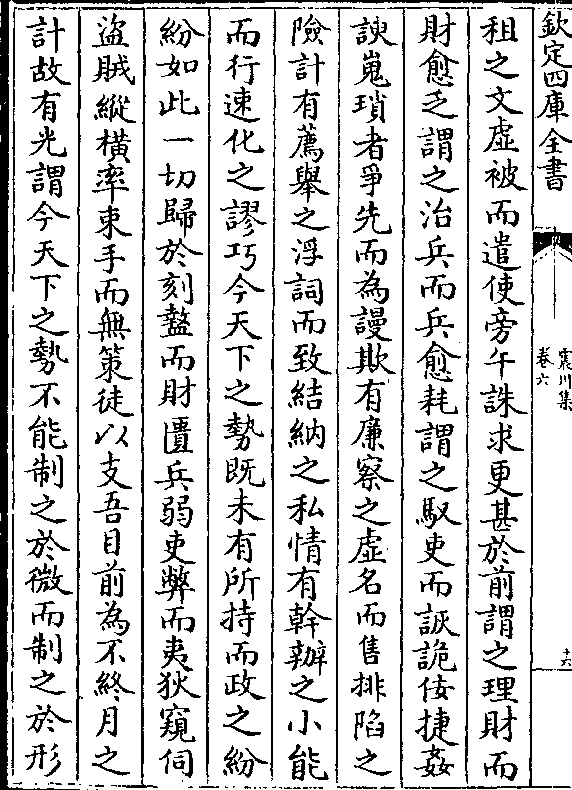 欽定四庫全書
震川集
卷六
十六
租之文虛被而遣使旁午誅求更甚於前謂之理財而
財愈乏謂之治兵而兵愈耗謂之馭吏而詼詭佞捷姦
諛嵬瑣者爭先而為謾欺有廉察之虛名而售排陷之
險計有薦舉之浮詞而致結納之私情有幹辦之小能
而行速化之謬巧今天下之勢既未有所持而政之紛
紛如此一切歸於刻盭而財匱兵弱吏弊而夷狄窺伺
盜賊縱橫率束手而無策徒以支吾目前為不終月之
計故有光謂今天下之勢不能制之於微而制之於形